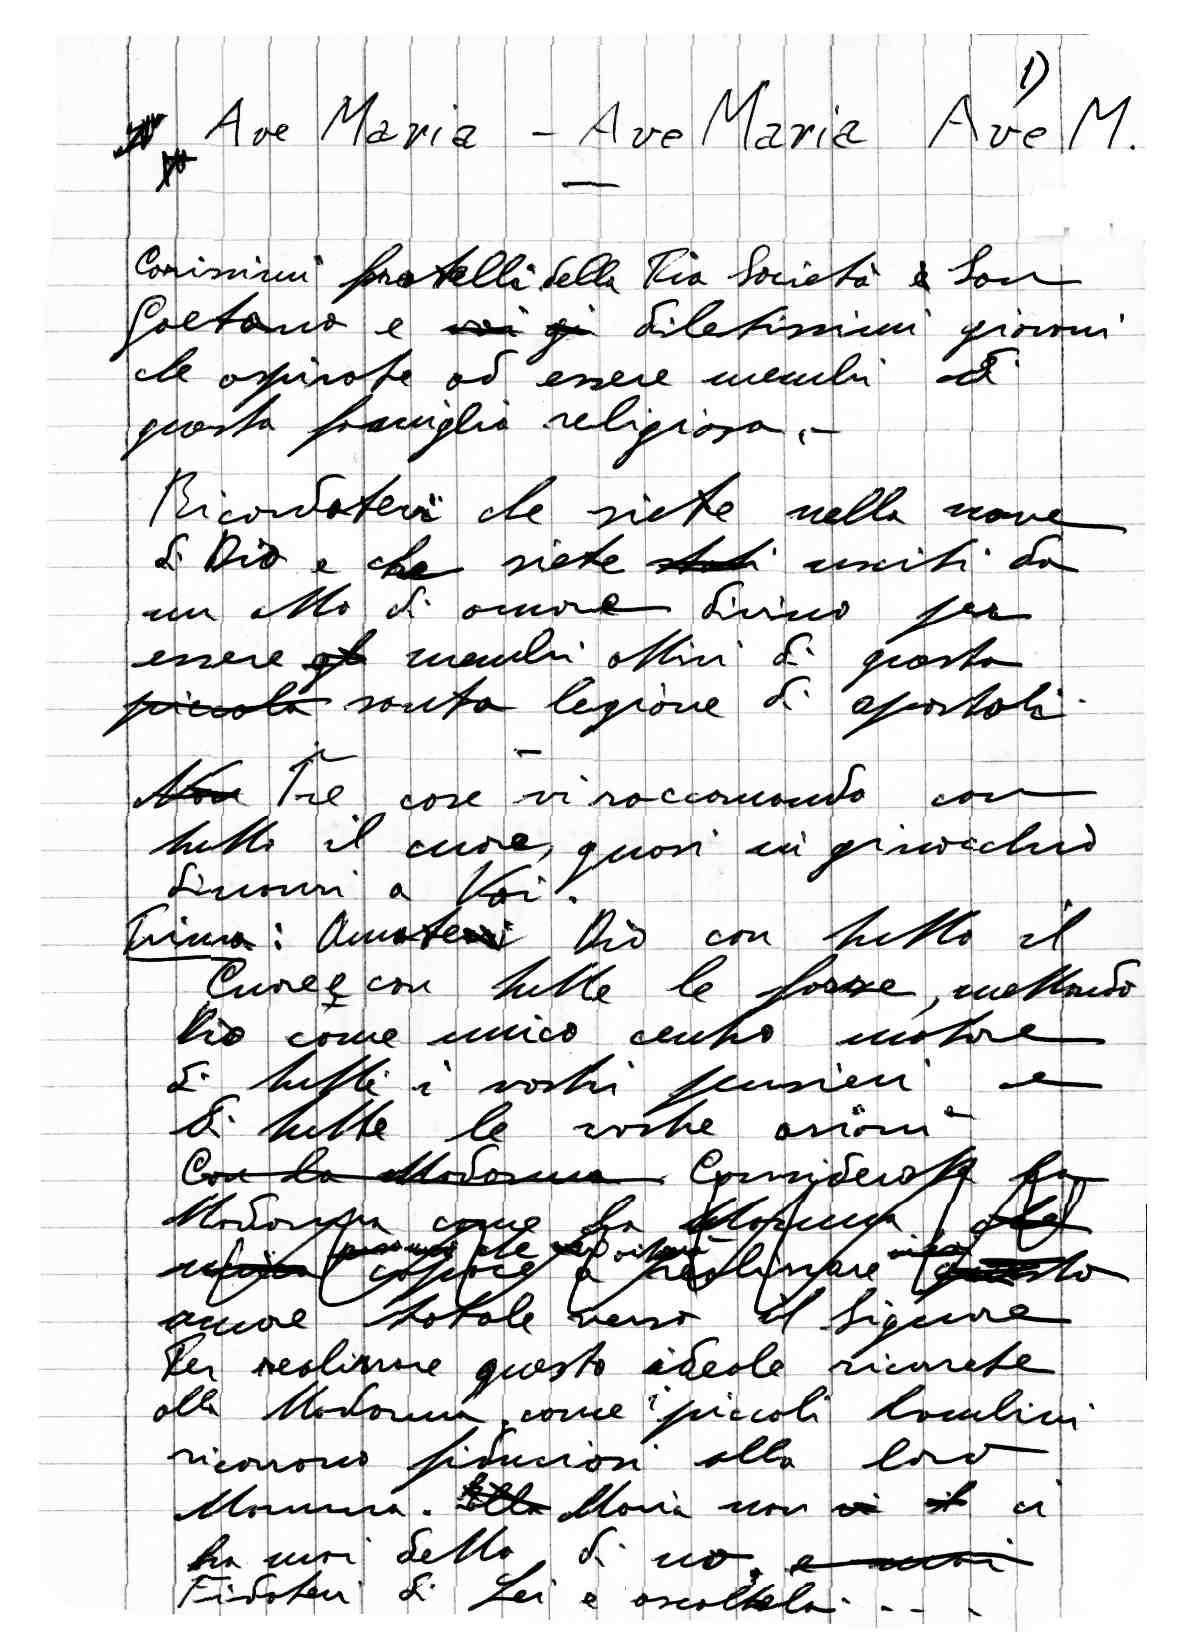 1)
Ave Maria - Ave Maria Ave M.
Carissimi fratelli della Pia Società San
Gaetano e voi gi diletissimi giovani
che aspirate ad essere membri di
questa famiglia religiosa.-
Ricordatevi che siete nella nave
di Dio e che siete stati usciti da
un atto di amore divino per
essere membri attivi di questa
piccola santa legione di apostoli.
Non Tre cose vi raccomando con
tutto il cuore, quasi in ginocchio
dinanzi a Voi.
Prima: Amate Dio con tutto il
Cuore e con tutte le forze, mettendo
Dio come unico centro motore
di tutti i vostri pensieri e
di tutte le vostre azioni
Con la Madonna Considerate la
Madonna come la Mamma che
capace a realizzare questo
amore totale verso il Signore
Per realizzare questo ideale ricorrete
alla Madonna, come i piccoli bambini
ricorrono fiduciosi alla loro
Mamma. alla Maria non vi ci
ha mai detto di no, e mai
Fidatevi di Lei e ascoltatela. - - .